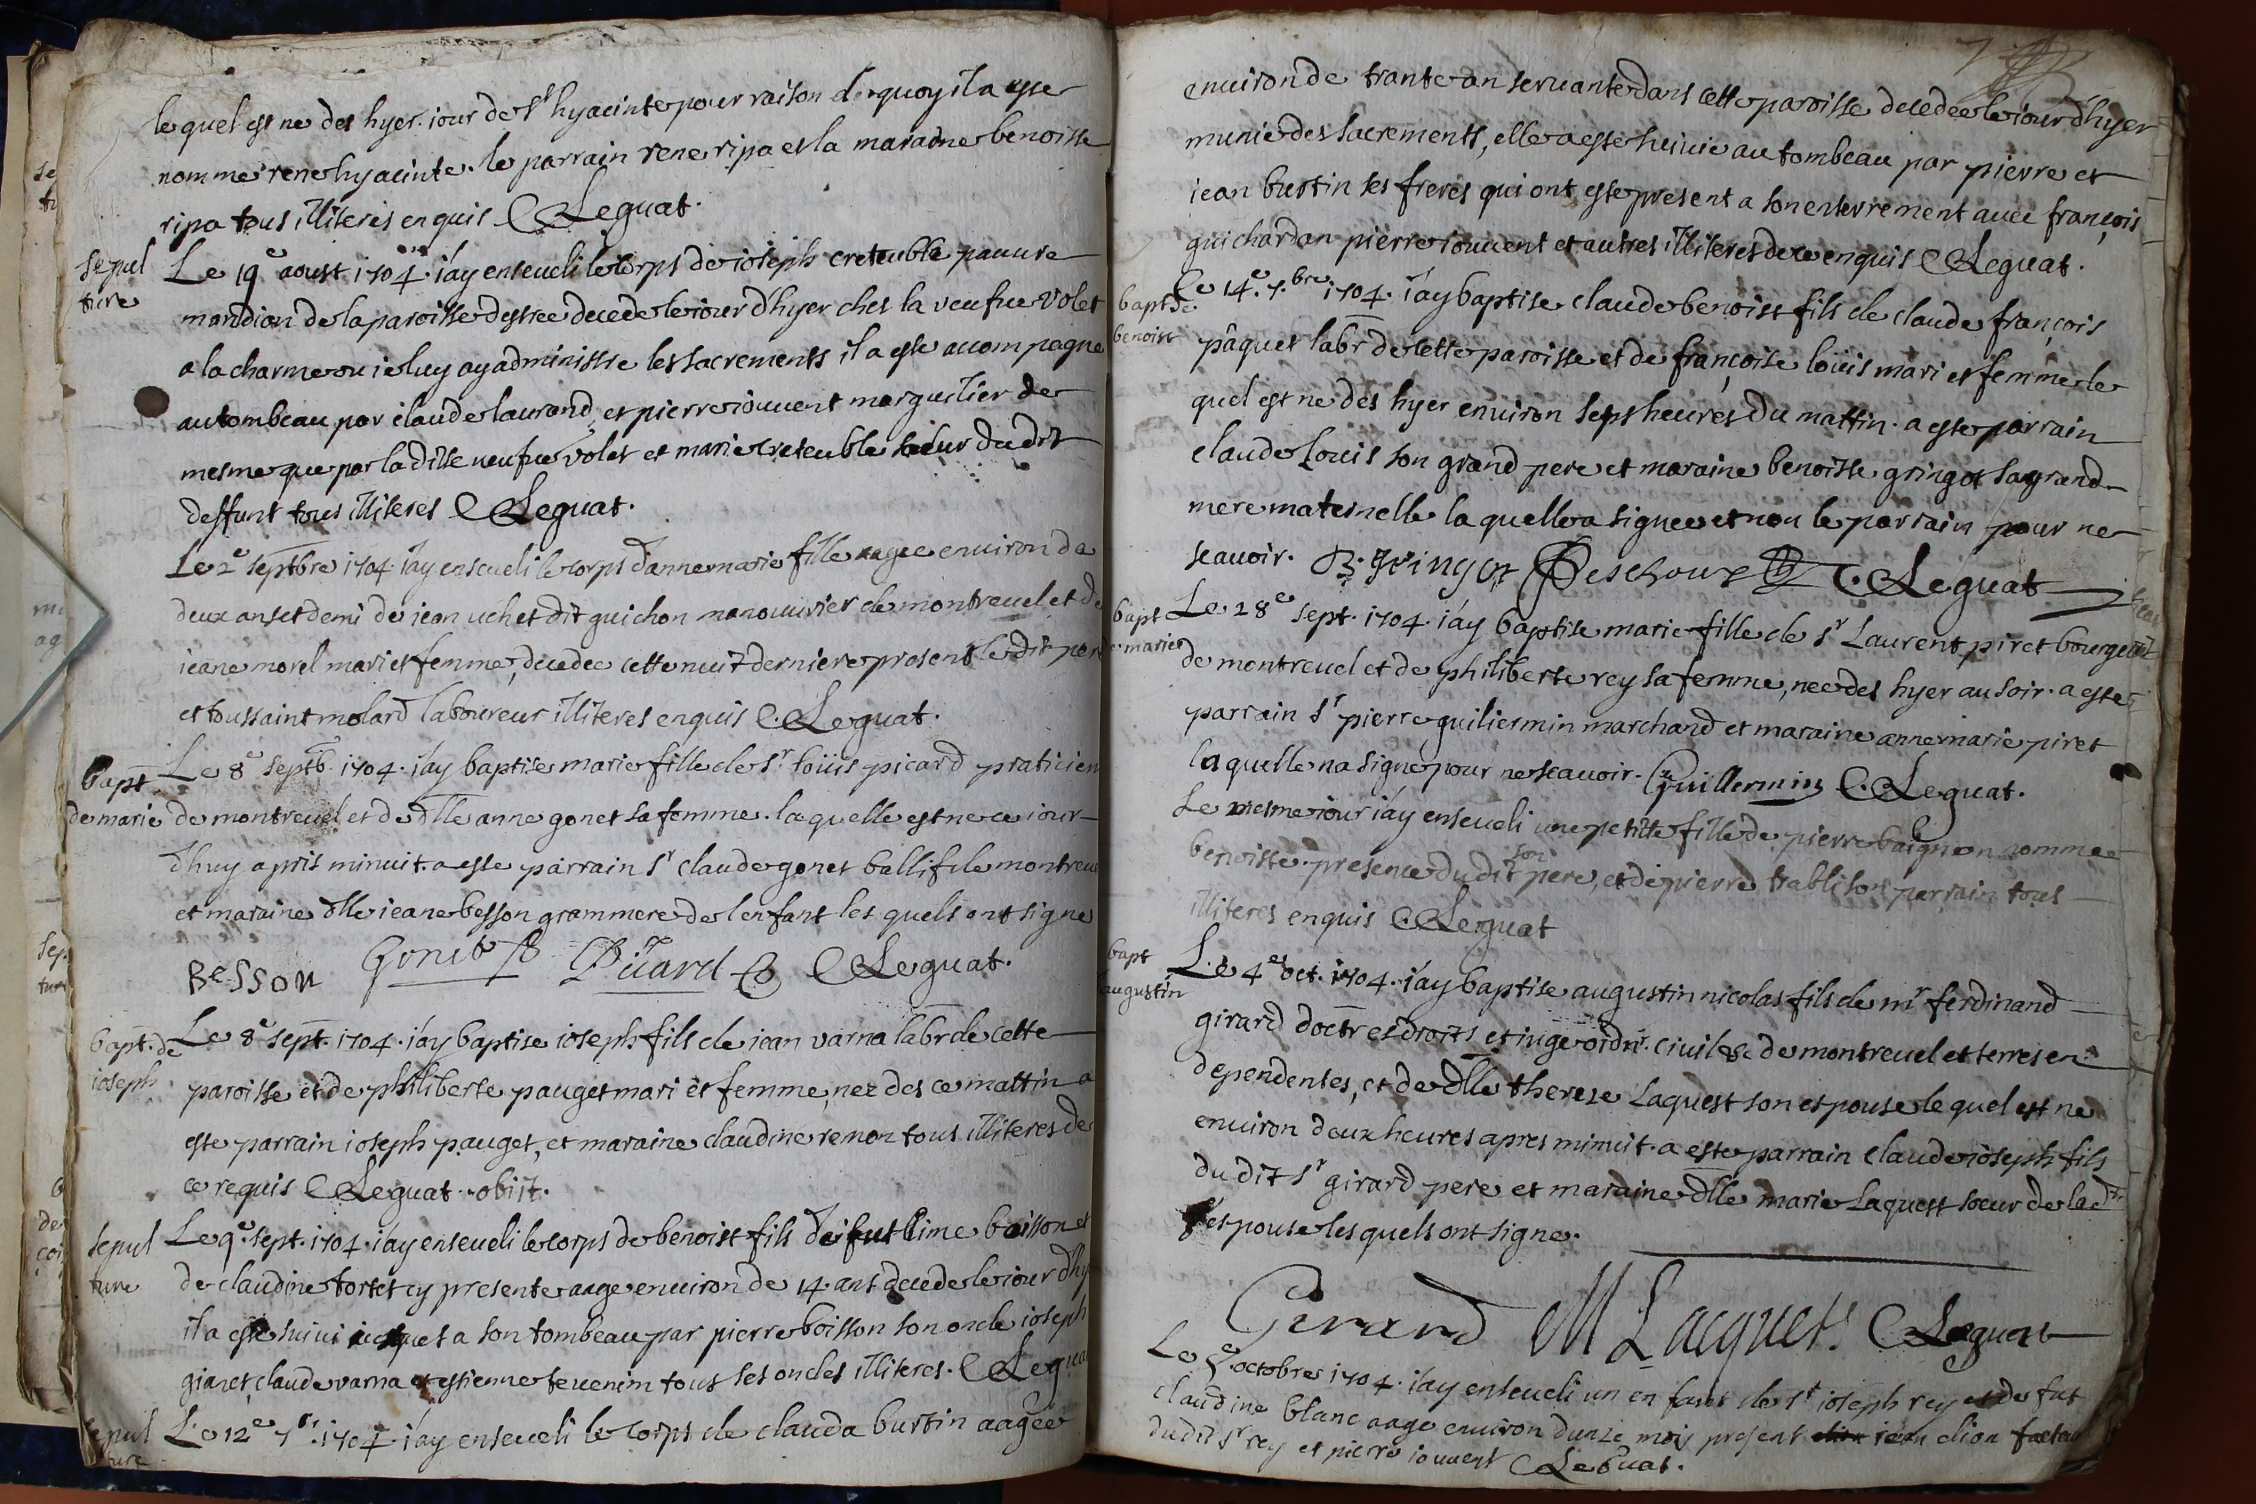 lequel est ne des hyer iour de st hyacinte pour raison dequoy il a este
nomme rene hyacinte. le parrain rene ripa et la maraine benoiste
ripa tous illiteres enquis C Leguat.
sepul
ture
Le 19e aoust 1704. i'ay enseueli le corps de ioseph creteuble pauure
mandian de la paroisse destree decede le iour d'hyer ches la veufue volet
a la charme ou ie luy ay administre les sacrements il a este acompagne
au tombeau par claude laurand et pierre iouuent marguilier de
mesme que par la ditte ueufue volet et marie creteuble soeur du dit
deffunt tous illiteres C Leguat.
Le 2e septbre 1704. i'ay enseueli le corps d'anne marie fille aagee environ de
deux ans et demi de iean uchet dit guichon manouurier de montreuel et de
ieane morel mari et femme, decedee cette nuit derniere present le dit pere
et toussaint molard laboureur illiteres enquis C. Leguat.
bapt
de marie
Le 8e septb. 1704. i'ay baptise marie fille de sr. loüis picard praticien
de montreuel et de dlle anne gonet sa femme. laquelle est ne ce iour
d'huy apris minuit. a este parrain sr claude gonet ballif de montreue
et maraine dlle ieane besson grammere de l'enfant les quels ont signe
BeSSon Gonet Picard C Leguat.
bapt. de
ioseph
Le 8e sept. 1704. i'ay baptise ioseph fils de iean varna labr de cette
paroisse et de philiberte pauget mari et femme, nee des ce mattin a
este parrain ioseph pauget, et maraine claudine renon tous illiteres de
ce requis C Leguat. obiit.
sepul
ture
Le 9e. sept. 1704. i'ay enseueli le corps de benoist fils de fut lime boisson et
de claudine tortet cy presente aage enuiron de 14. ans decede le iour d'hy
il a este suiui iusques a son tombeau par pierre boisson son oncle ioseph
gianet, claude varna et estienne teuenin tous ses oncles illiteres. C Legua
sepul
ture
Le 12e 7br. 1704 i'ay enseueli le corps de clauda burtin aagée
7
enuiron de trante an seruante dans cette paroisse decedee le iour d'hyer
munie des sacrements, elle a este suiuie au tombeau par pierre et
iean burtin ses freres qui ont este present a son enterrement auec françois
guichardan pierre iouuent et autres illiteres de ce enquis C Leguat.
bapt de
benoist
Le 14e. 7.bre 1704. i'ay baptise claude benoist fils de claude françois
pâquet labr de cette paroisse et de françoise loüis mari et femme le
quel est ne des hyer enuiron sept heures du mattin. a este parrain
claude Louis son grand pere et maraine benoiste gringot sa grand
mere maternelle la quelle a signee et non le parrain pour ne
scauoir. B. gringot Deschoux C. Leguat
bapt
de marie
Le 28e sept. 1704. i'ay baptise marie fille de sr Laurent piret bourgeois
de montreuel et de philiberte rey sa femme, nee des hyer au soir. a este
parrain sr pierre guiliermin marchand et maraine anne marie piret
la quelle na signe pour ne scauoir. Guillermin C. Leguat.
Le mesme iour i'ay enseueli une petitte fille de pierre baignon nommee
benoiste. presence du dit son pere, et de pierre trabli son parrain tous
illiteres enquis C. Leguat
bapt
augustin
Le 4e oct. 1704. i'ay baptise augustin nicolas fils de mr ferdinand
girard doctr es droits et iuge ordre. ciuil &c de montreuel et terres en
dependentes, et de dlle therese Laquest son espouse le quel est ne
enuiron deux heures apres minuit. a este parrain claude ioseph fils
du dit sr girard pere et maraine dlle marie Laquest soeur de la dte
espouse les quels ont signe.
Girard M Lacquets C Leguat
Le 5e octobre 1704. i'ay enseueli un enfant de sr ioseph rey et de fut
claudine blanc aage enuiron dunze mois present iean clion facteur
du dit sr rey et pierre iouuent C Leguat.